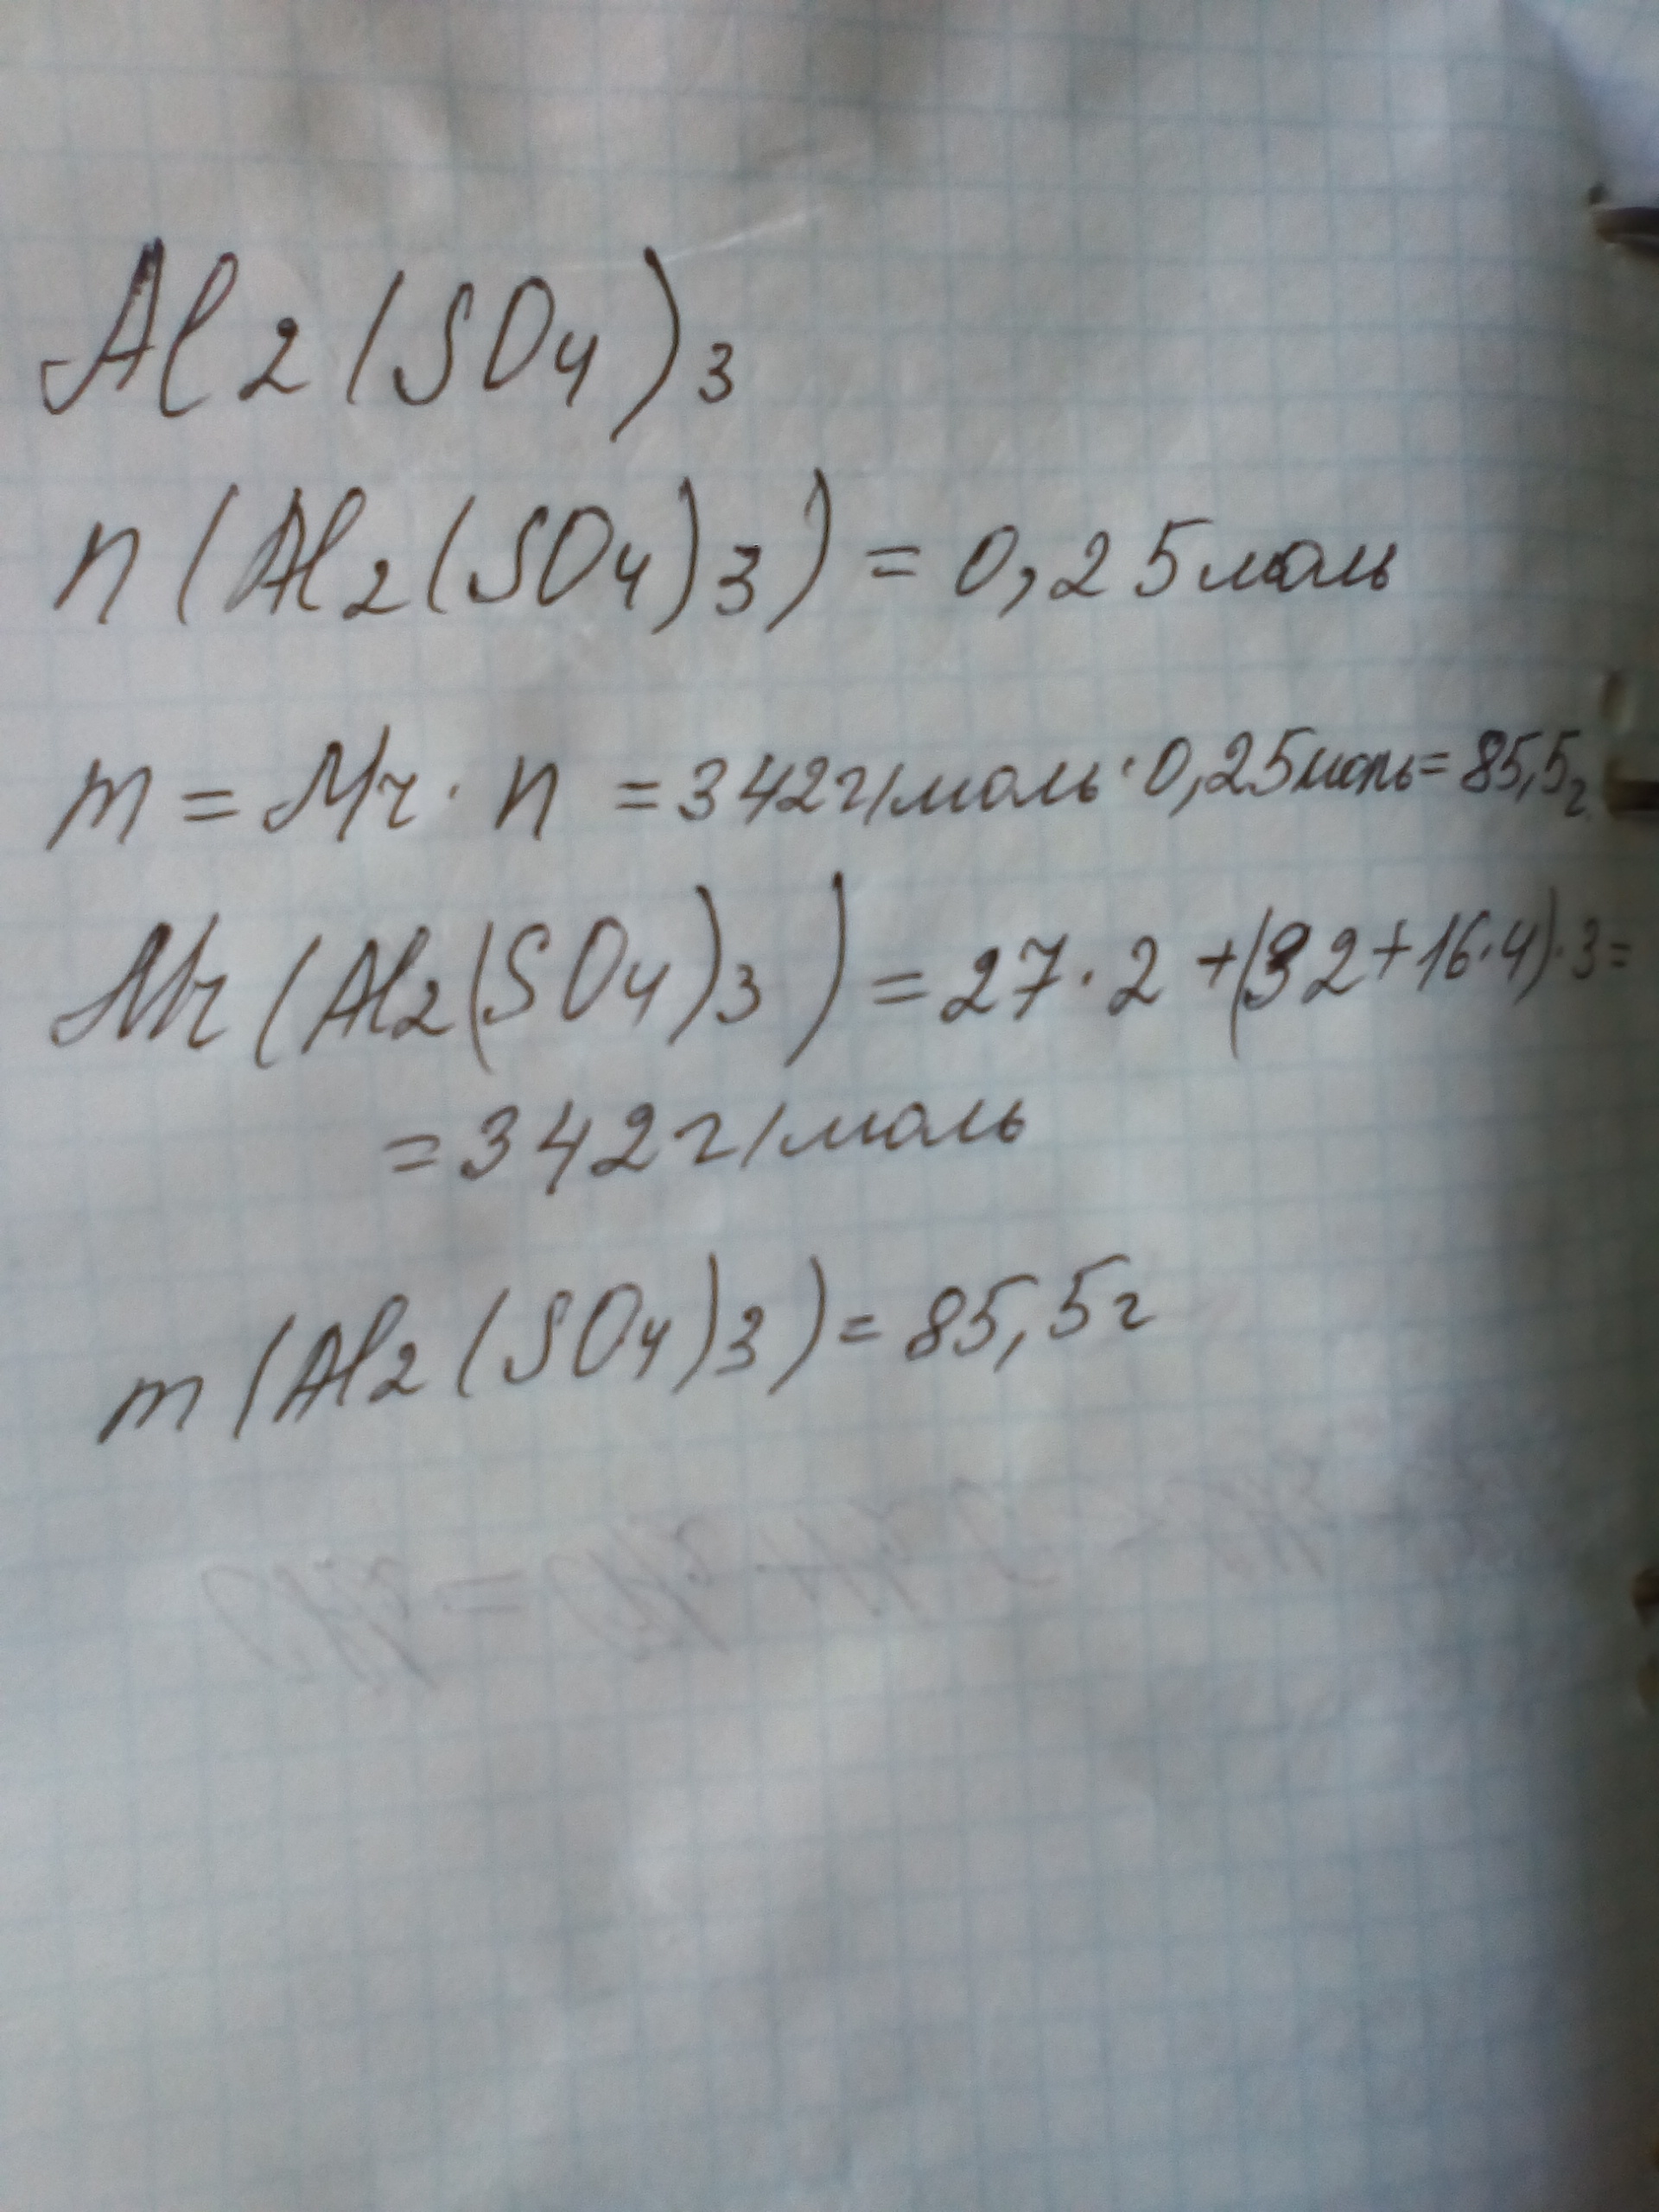 Al2(SO4)3
n(Al2(SO4)3) = 0,25моль
m = Mr · n = 342г/моль · 0,25моль = 85,5г
Mr(Al2(SO4)3) = 27 · 2 + (32 + 16 · 4) · 3 =
= 342г/моль
m(Al2(SO4)3) = 85,5г